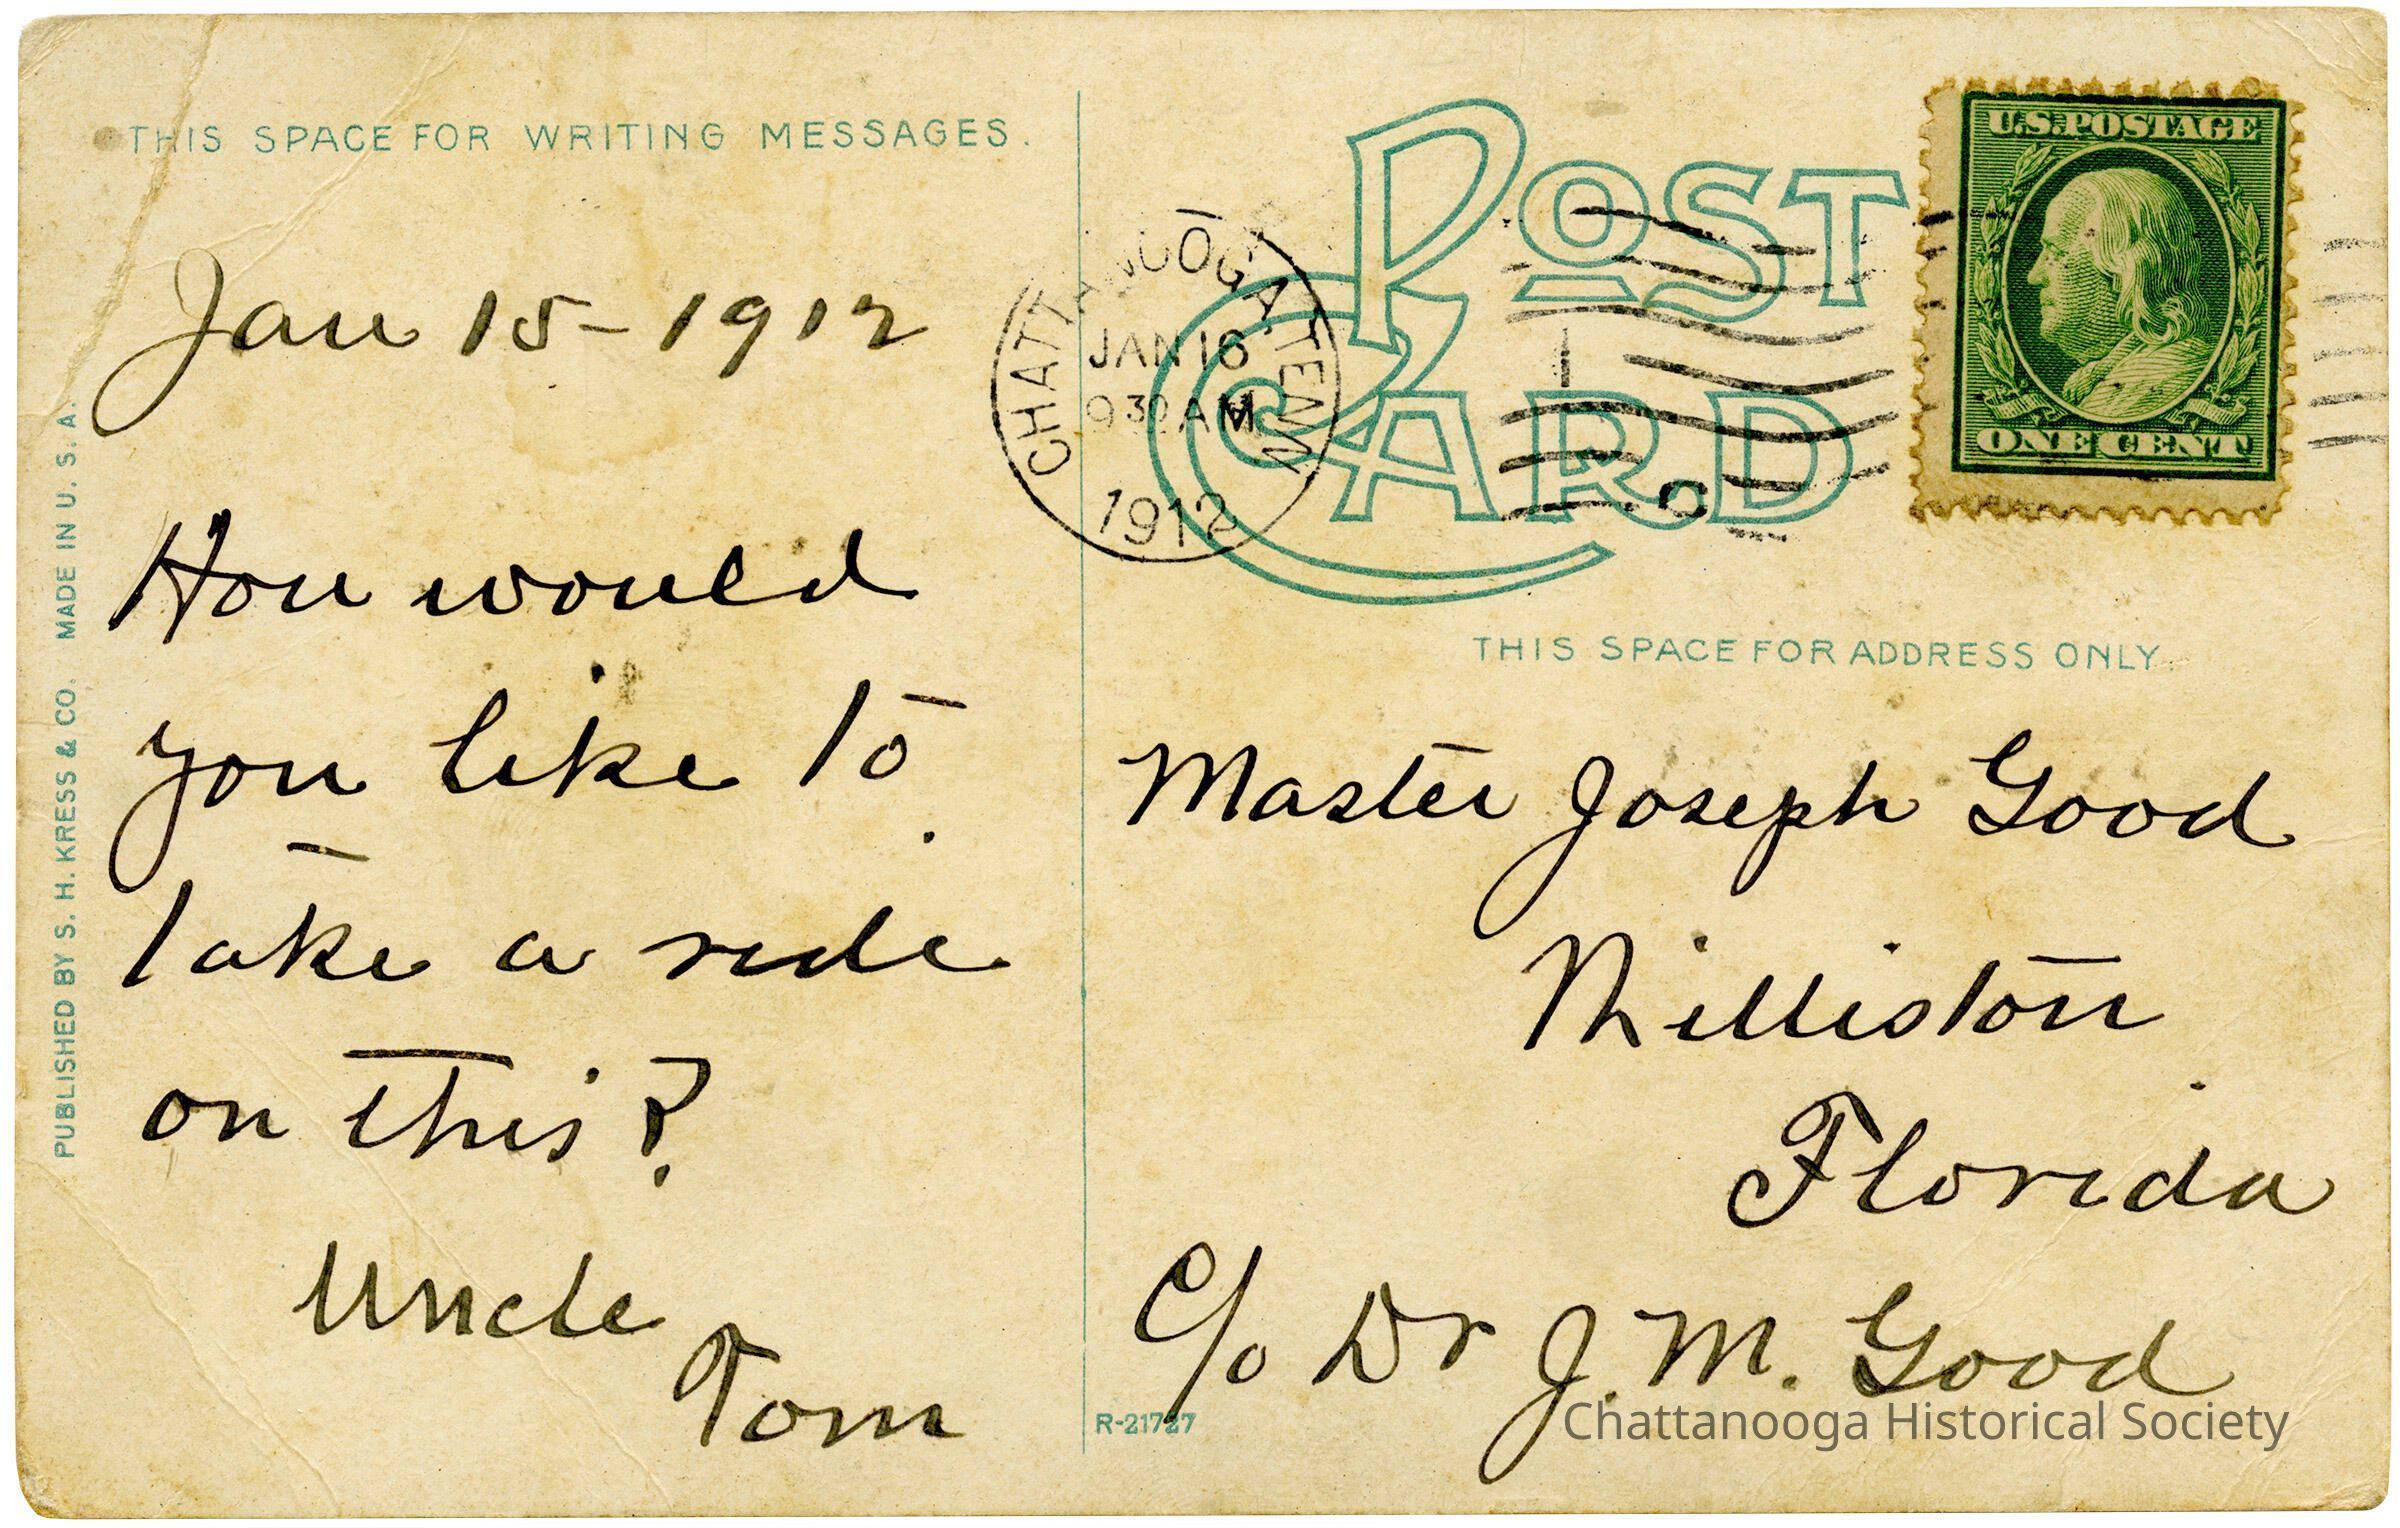 THIS SPACE FOR WRITING MESSAGES.
Jan 15 - 1912
How would
you like to
take a ride
on this?
Uncle
Tom
PUBLISHED BY S. H. KRESS & CO. MADE IN U. S. A.
POST
CARD
CHATTANOOGA, TENN
JAN 16
9 30 AM
1912
U.S. POSTAGE
ONE CENT
THIS SPACE FOR ADDRESS ONLY.
Master Joseph Good
Williston
Florida
c/o Dr J. M. Good
R-21727
Chattanooga Historical Society